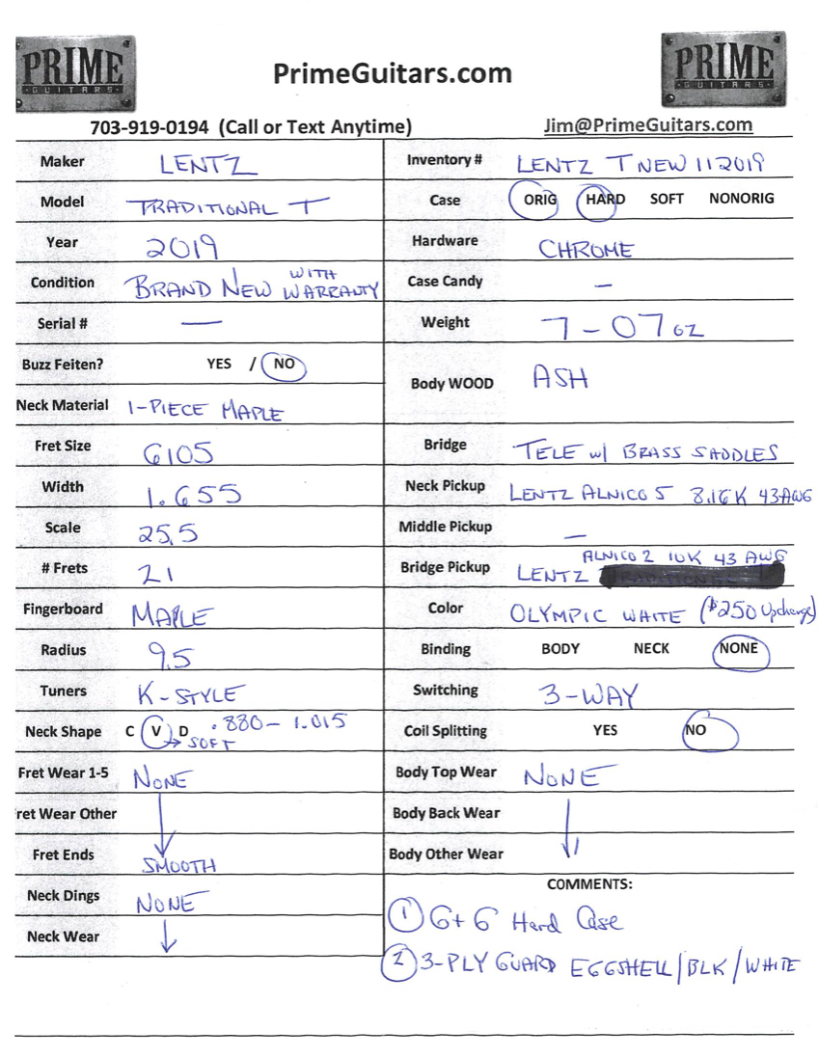 PRIME
GUITARS
PrimeGuitars.com
PRIME
GUITARS
703-919-0194 (Call or Text Anytime) Jim@PrimeGuitars.com
Maker LENTZ Inventory # LENTZ T NEW 112019
Model TRADITIONAL T Case ORIG HARD SOFT NONORIG
Year 2019 Hardware CHROME
Condition BRAND NEW WITH WARRANTY Case Candy –
Serial # — Weight 7-07oz
Buzz Feiten? YES / NO Body WOOD ASH
Neck Material 1-PIECE MAPLE
Fret Size 6105 Bridge TELE w/ BRASS SADDLES
Width 1.655 Neck Pickup LENTZ ALNICO 5 8.16K 43AWG
Scale 25.5 Middle Pickup –
# Frets 21 Bridge Pickup LENTZ ALNICO 2 10K 43 AWG
Fingerboard MAPLE Color OLYMPIC WHITE ($250 Upcharge)
Radius 9.5 Binding BODY NECK NONE
Tuners K-STYLE Switching 3-WAY
Neck Shape C V D .880 - 1.015 Coil Splitting YES NO
→ SOFT
Fret Wear 1-5 NONE Body Top Wear NONE
ret Wear Other Body Back Wear
Fret Ends SMOOTH Body Other Wear
Neck Dings NONE COMMENTS:
Neck Wear ① G+G Hard Case
② 3-PLY GUARD EGGSHELL/BLK/WHITE